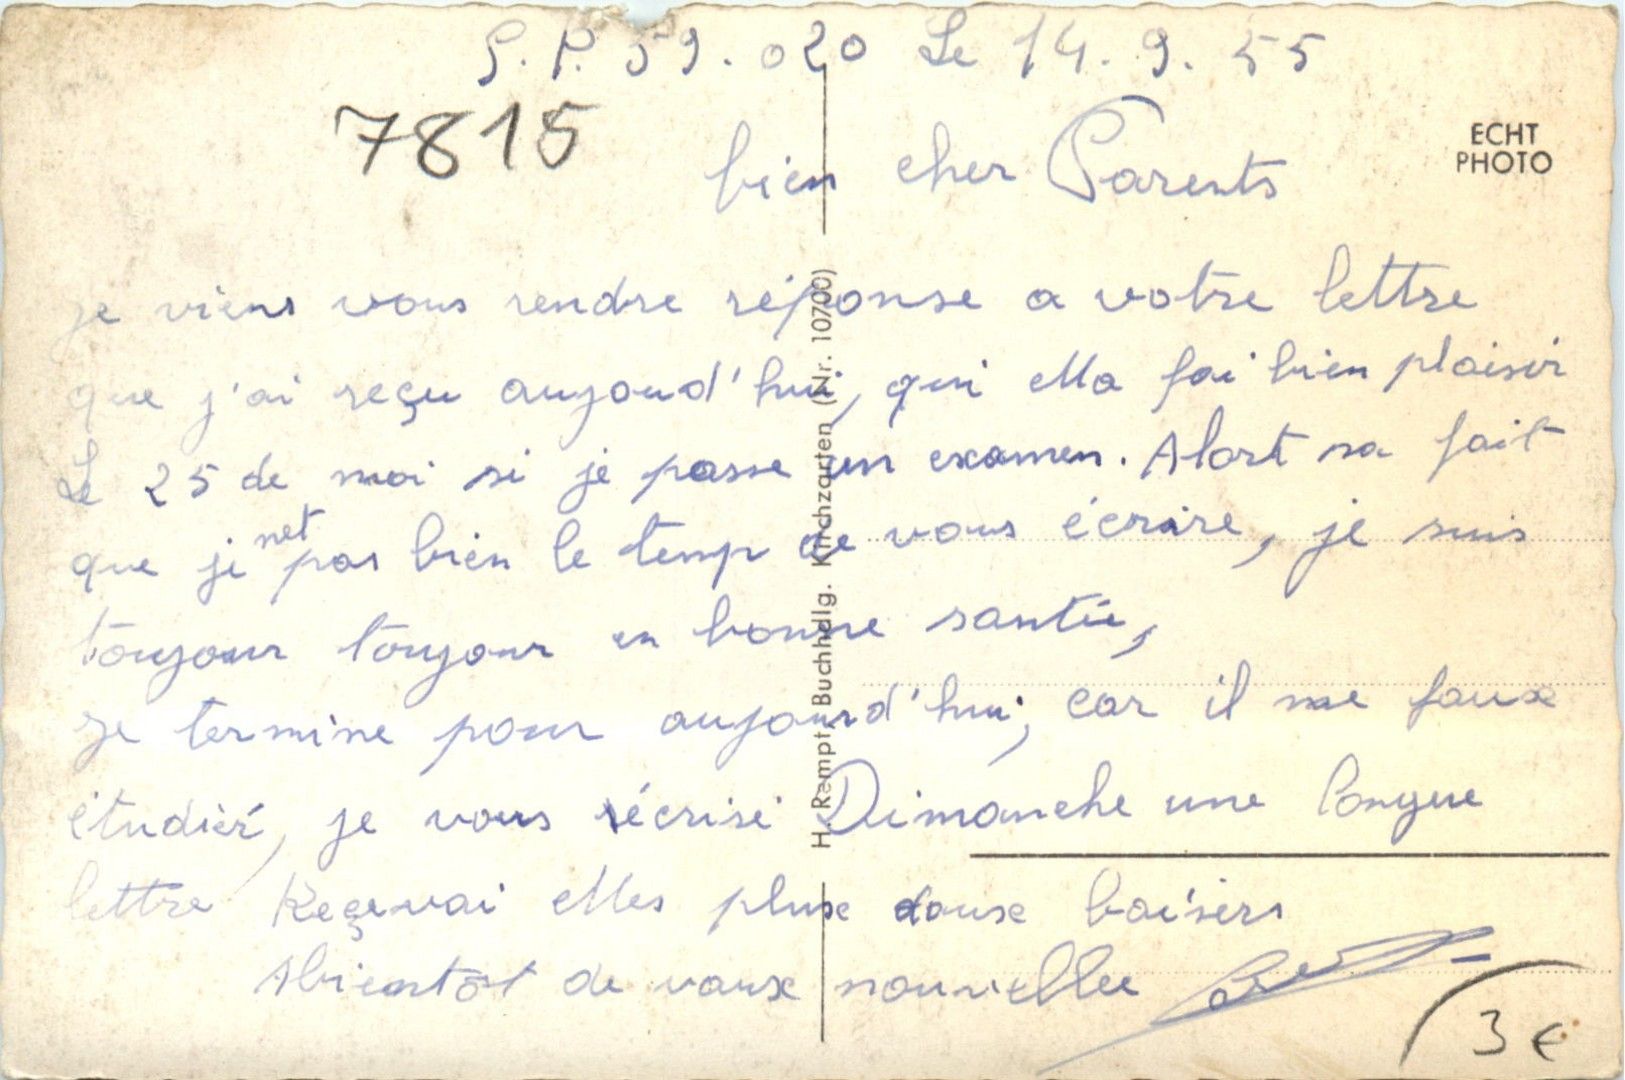 S.P. 59.020 Le 14.9.55
7815
bien cher Parents
ECHT
PHOTO
je viens vous rendre réponse a votre lettre
que j'ai reçu aujoud'hui, qui ella fai bien plaisir
Le 25 de moi si je passe un examen. Alort sa fait
que je net pas bien le temp de vous écrire, je suis
toujour toujour en bonne santée,
je termine pour aujourd'hui, car il me faux
étudier, je vous récrise Dimanche une longue
lettre Reçevai elles pluse douse baisers
Abientôt de vouse nouvelles
H. Rempt, Buchhdlg. Kirchzarten (Nr. 10700)
3 €